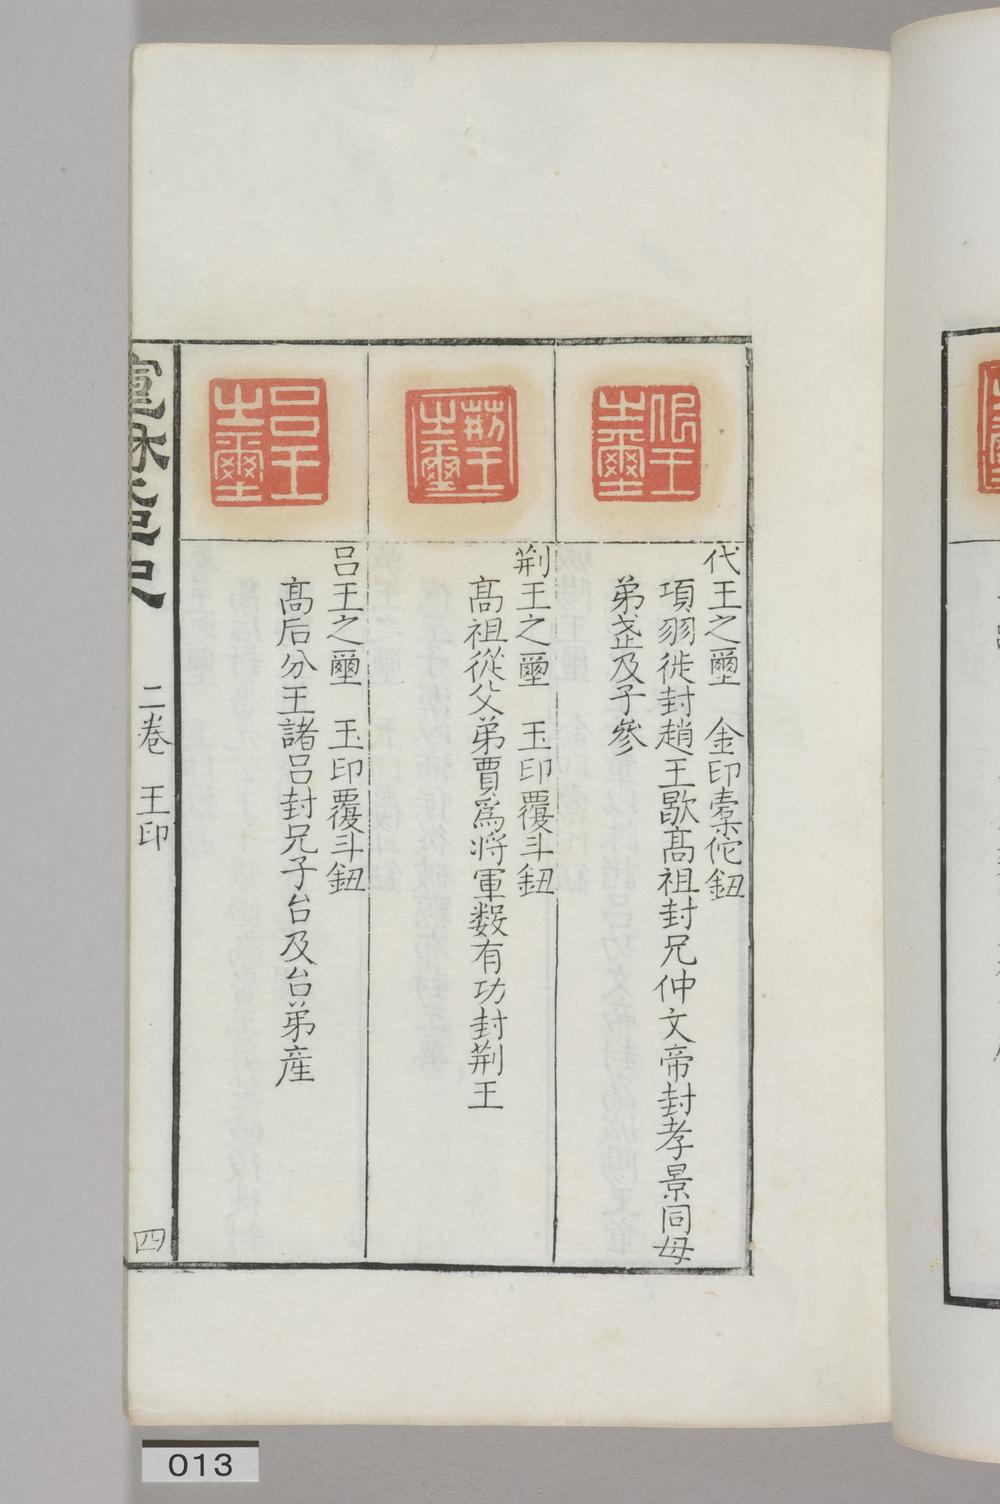 代王之璽
代王之璽　金印橐佗鈕
項羽徙封趙王歇高祖封兄仲文帝封孝景同母
弟武及子參
荆王之璽
荆王之璽　玉印覆斗鈕
高祖從父弟賈為將軍數有功封荆王
吕王之璽
吕王之璽　玉印覆斗鈕
高后分王諸吕封兄子台及台弟產
二卷　王印
四
013